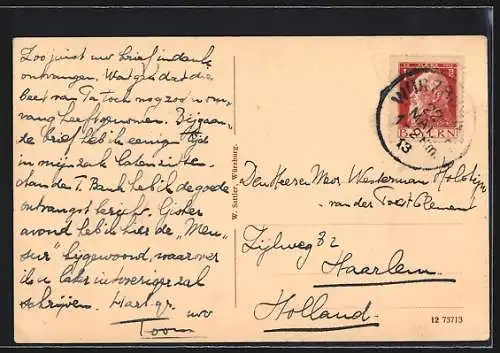 Zoo juist uw brief in dank
ontvangen. Wat gek dat die
beest van Ta toch nog zoo'n om-
vang heeft genomen. Bijgaan-
de brief heb ik eenigen tijd
in mijn zak laten zitten.
Van de T. Bank heb ik de goede
ontvangst bericht. Gister
avond heb ik hier de "Men-
sur" bijgewoond, waarover
ik u later in overiger zal
schrijven. Hart. gr. uw
Toon
W. Sattler, Würzburg.
BAYERN
WÜRZB
MAI
13
Den Heeren Meos Westerman Holstijn
van der Toest Clemen
Zijlweg 32
Haarlem
Holland
12 73713